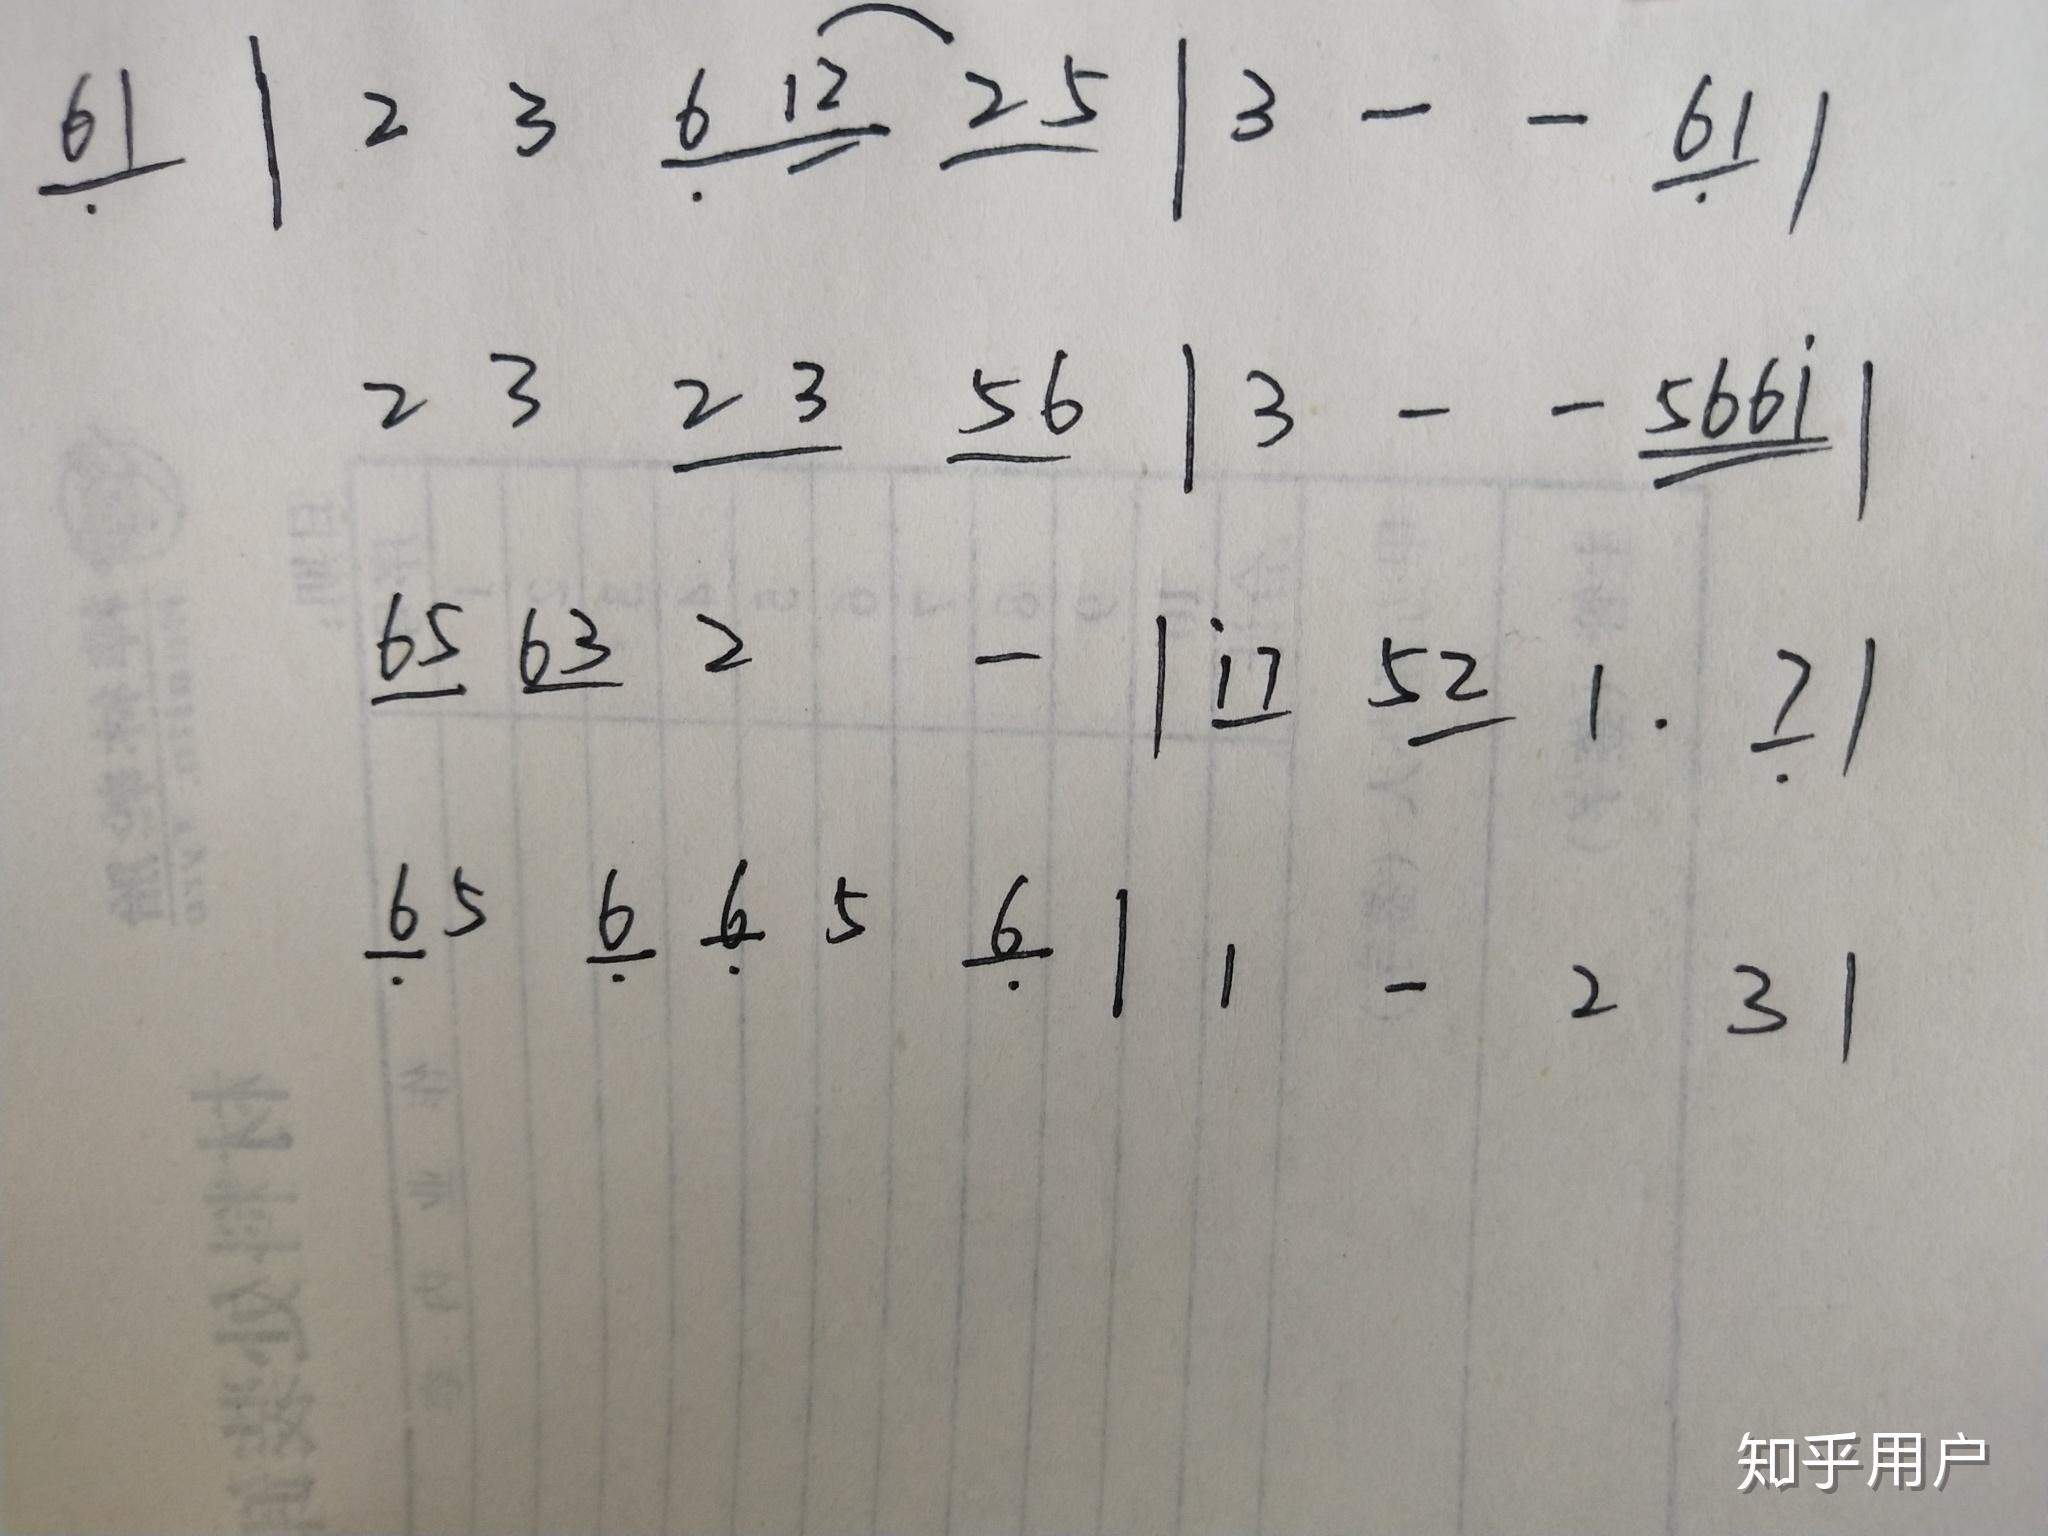 61 | 2 3 6 12 25 | 3 - - 61 |
2 3 2 3 56 | 3 - - 566i |
65 63 2 - | i7 52 1 . 7 |
65 6 6 5 6 | 1 - 2 3 |
知乎用户